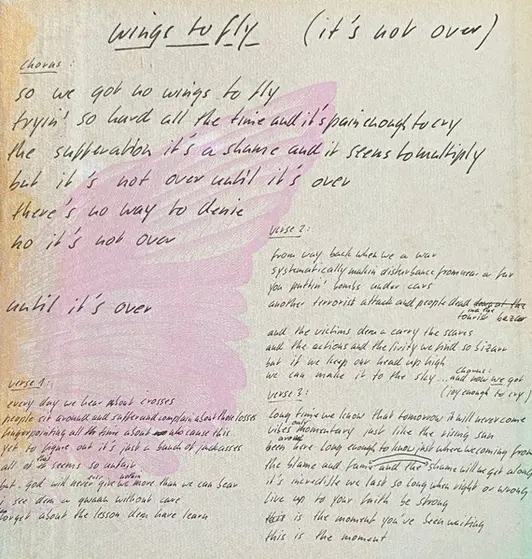 wings to fly (it's not over)
chorus:
so we got no wings to fly
tryin' so hard all the time and it's pain enough to cry
the sufferation it's a shame and it seems to multiply
but it's not over until it's over
there's no way to denie
no it's not over
until it's over
verse 1:
every day we hear about crosses
people sit around and suffer and complain about those losses
fingerpointing all the time about who cause this
yet to figure out it's just a bunch of jackasses
all of seems so unfair
but god will never give us more than we can bear
i see dem a gwaan without care
forget about the lesson dem have learn
verse 2:
from way back when we a war
systematically makin disturbance from near a far
you puttin' bombs under cars
another terrorist attack and people dead
in a the tourist bazar
and the victims dem a carry the scares
and the actions and the we find so bizarr
but if we keep our head up high
we can make it to the sky... and now we got
chorus:
(joy enough to cry)
verse 3:
long time we know that tomorrow it will never come
vibes only momentary just like the rising sun
been around here long enough to know just where coming from
the blame and fame and the shame will get along
it's incredible we last so long when right or wrong
live up to your faith be strong
this is the moment you've been waiting
this is the moment